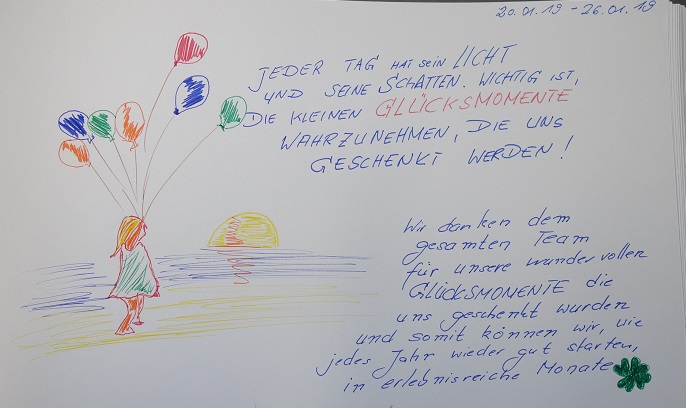 20.01.19 - 26.01.19
JEDER TAG HAT SEIN LICHT
UND SEINE SCHATTEN. WICHTIG IST,
DIE KLEINEN GLÜCKSMOMENTE
WAHRZUNEHMEN, DIE UNS
GESCHENKT WERDEN!
Wir danken dem
gesamten Team
für unsere wundervollen
GLÜCKSMOMENTE die
uns geschenkt wurden
und somit können wir, wie
jedes Jahr wieder gut starten,
in erlebnisreiche Monate